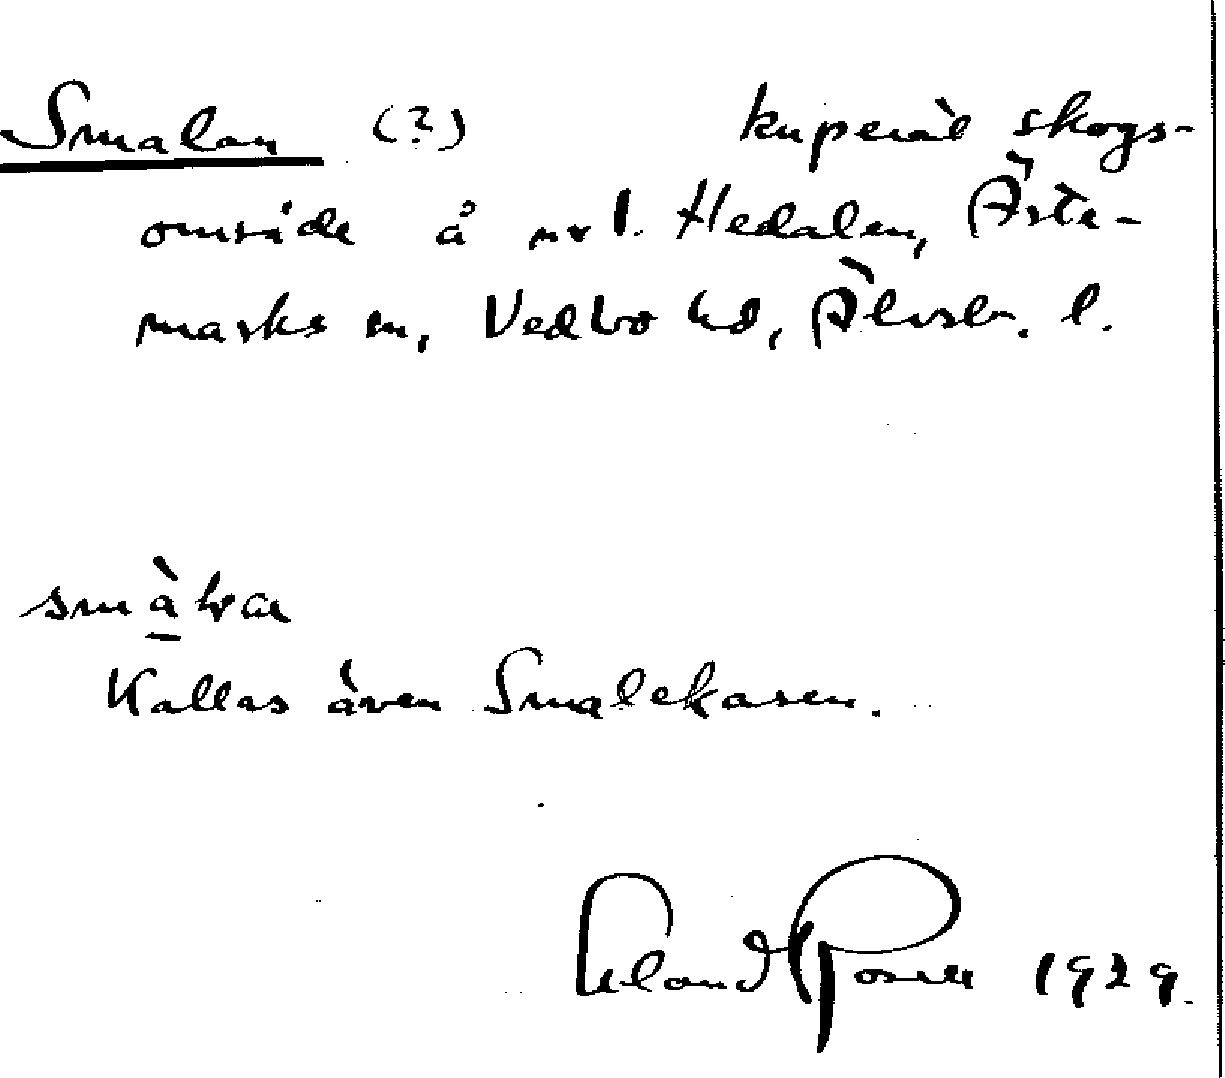 Smalan (?) kuperat skogs-
område å nr 1. Hedalen, Ärte-
marks sn, Vedbo hd, Älvsb. l.
Kallas även Smalekasen.
Erland Rosell 1929.